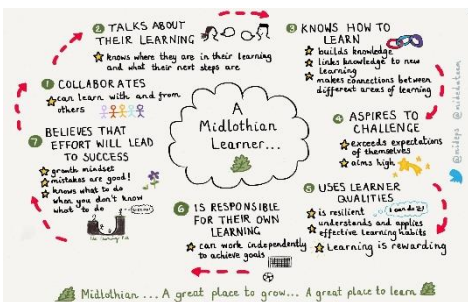 A
Midlothian
Learner...
1 COLLABORATES
can learn with and from
others
2 TALKS ABOUT
THEIR LEARNING
knows where they are in their learning
and what their next steps are
3 KNOWS HOW TO
LEARN
builds knowledge
links knowledge to new
learning
makes connections between
different areas of learning
4 ASPIRES TO
CHALLENGE
exceeds expectations
of themselves
aims high
5 USES LEARNER
QUALITIES
I can do it!
is resilient
understands and applies
effective learning habits
Learning is rewarding
6 IS RESPONSIBLE
FOR THEIR OWN
LEARNING
can work independently
to achieve goals
7 BELIEVES THAT
EFFORT WILL LEAD
TO SUCCESS
growth mindset
mistakes are good!
knows what to do
when you don't know
what to do
The Learning Pit
@mideps @mideduteam
Midlothian... A great place to grow... A great place to learn